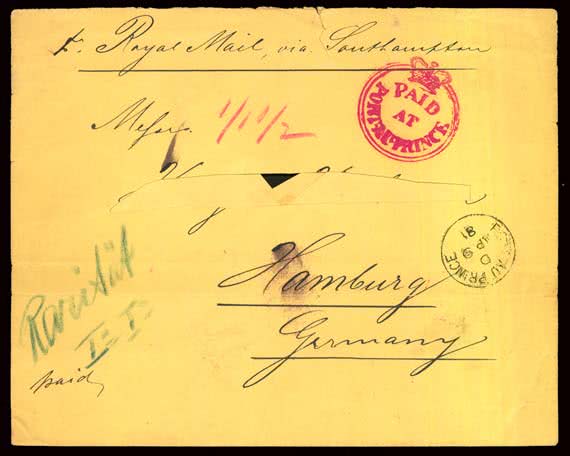 pr. Royal Mail, via Southampton
PAID
AT
PORT-AU-PRINCE
Messrs. 1/11/2
Hamburg
Germany
PORT AU PRINCE
D
AP 9
81
Rarität
I= I=
paid